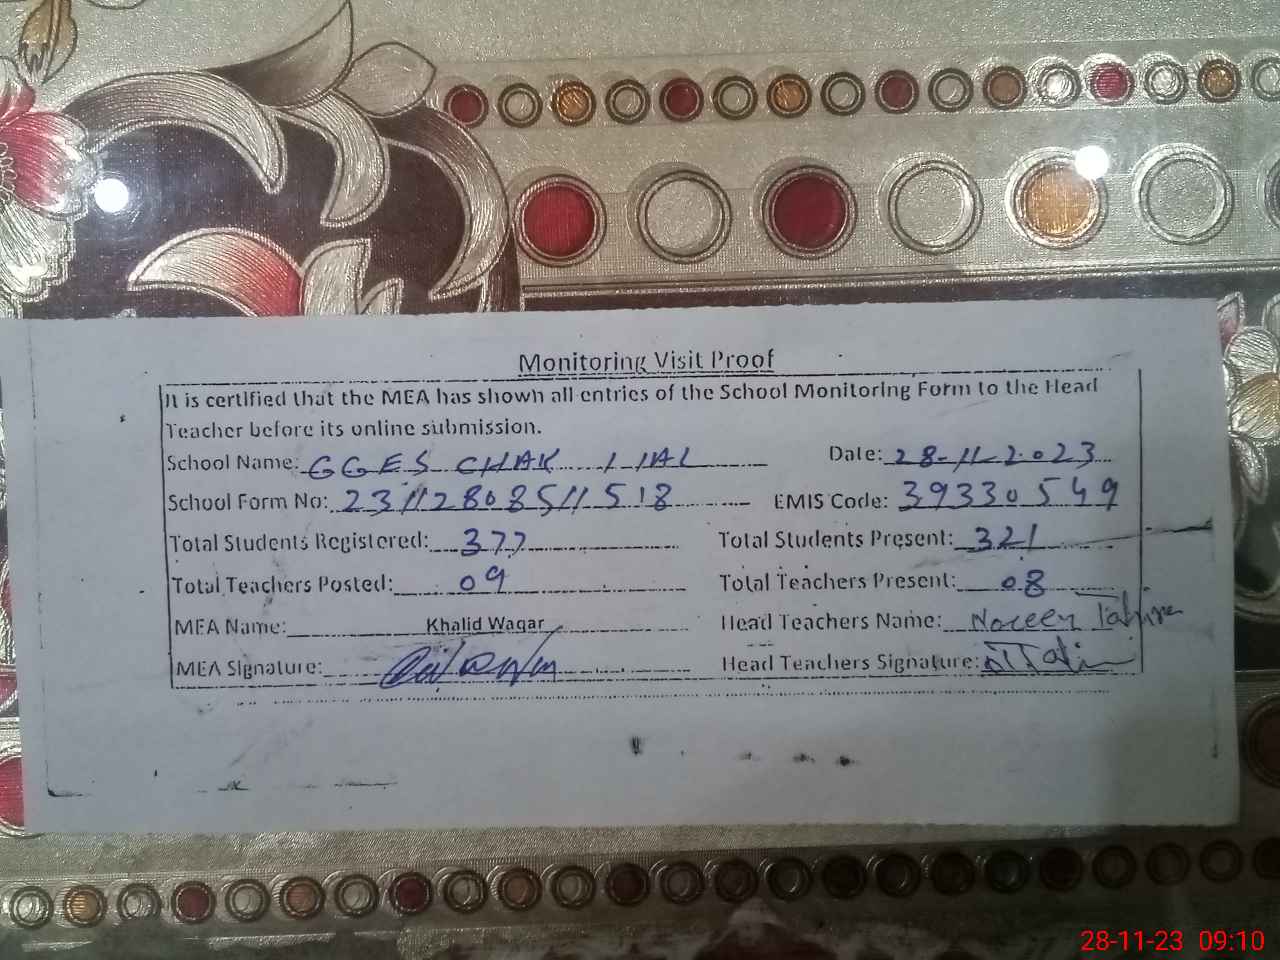 Monitoring Visit Proof
It is certified that the MEA has shown all entries of the School Monitoring Form to the Head
Teacher before its online submission.
School Name: GGES CHAK 1 Date: 28-11-2023
School Form No: 23112808511518 EMIS Code: 39330549
Total Students Registered: 377 Total Students Present: 321
Total Teachers Posted: 09 Total Teachers Present: 08
MEA Name: Khalid Waqar Head Teachers Name: Noreen Tahira
MEA Signature: Head Teachers Signature:
28-11-23 09:10